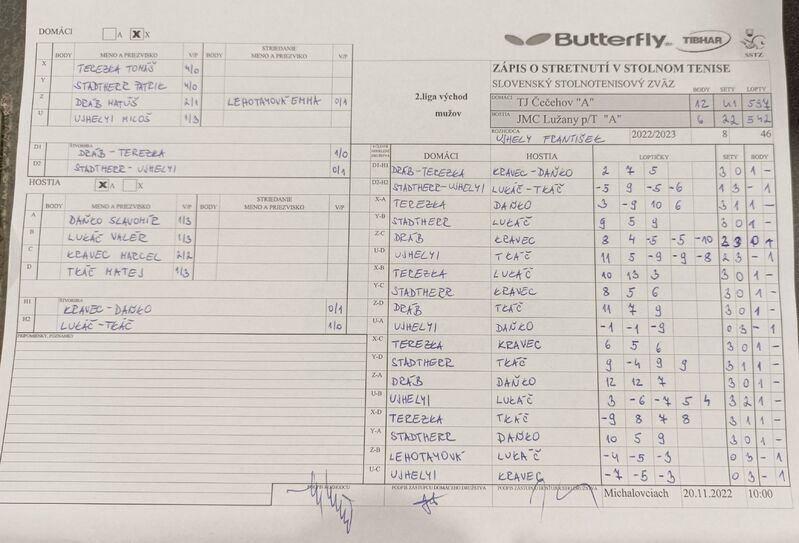 DOMÁCI A X X
BODY MENO A PRIEZVISKO V/P BODY STRIEDANIE MENO A PRIEZVISKO V/P
X TEREZKA TOMÁŠ 4/0
Y STADTHERR PATRIK 4/0
Z DRÁB MATÚŠ 2/1 LEHOTAYOVÁ EMMA 0/1
U UJHELYI MILOŠ 1/3
ŠTVORHRA
D1 DRÁB - TEREZKA 1/0
D2 STADTHERR - UJHELYI 0/1
HOSTIA X A X
BODY MENO A PRIEZVISKO V/P BODY STRIEDANIE MENO A PRIEZVISKO V/P
A DAŇKO SLAVOMÍR 1/3
B LUKÁČ VALÉR 1/3
C KRAVEC MARCEL 2/2
D TKÁČ MATEJ 1/3
ŠTVORHRA
H1 KRAVEC - DAŇKO 0/1
H2 LUKÁČ - TKÁČ 1/0
PRIPOMIENKY, POZNÁMKY
Butterfly TIBHAR SSTZ
2.liga východ
mužov
ZÁPIS O STRETNUTÍ V STOLNOM TENISE
SLOVENSKÝ STOLNOTENISOVÝ ZVÄZ
BODY SETY LOPTY
DOMÁCI TJ Čečehov "A" 12 41 537
HOSTIA JMC Lužany p/T "A" 6 22 542
ROZHODCA UJHELY FRANTIŠEK 2022/2023 8 46
DOMÁCI HOSTIA LOPTIČKY SETY BODY
D1-H1 DRÁB - TEREZKA KRAVEC - DAŇKO 2 7 5 3 0 1 -
D2-H2 STADTHERR - UJHELYI LUKÁČ - TKÁČ -5 9 -5 -6 1 3 - 1
X-A TEREZKA DAŇKO 3 -9 10 6 3 1 1 -
Y-B STADTHERR LUKÁČ 9 5 9 3 0 1 -
Z-C DRÁB KRAVEC 8 4 -5 -5 -10 2 3 0 1
U-D UJHELYI TKÁČ 11 5 -9 -9 -8 2 3 - 1
X-B TEREZKA LUKÁČ 10 13 3 3 0 1 -
Y-C STADTHERR KRAVEC 8 5 6 3 0 1 -
Z-D DRÁB TKÁČ 11 7 9 3 0 1 -
U-A UJHELYI DAŇKO -1 -1 -9 0 3 - 1
X-C TEREZKA KRAVEC 6 5 6 3 0 1 -
Y-D STADTHERR TKÁČ 9 -4 9 9 3 1 1 -
Z-A DRÁB DAŇKO 12 12 7 3 0 1 -
U-B UJHELYI LUKÁČ 3 -6 -7 5 4 3 2 1 -
X-D TEREZKA TKÁČ -9 8 7 8 3 1 1 -
Y-A STADTHERR DAŇKO 10 5 9 3 0 1 -
Z-B LEHOTAYOVÁ LUKÁČ -4 -5 -3 0 3 - 1
U-C UJHELYI KRAVEC -7 -5 -3 0 3 - 1
PODPIS ZÁSTUPCU DOMÁCEHO DRUŽSTVA
Michalovciach 20.11.2022 10:00